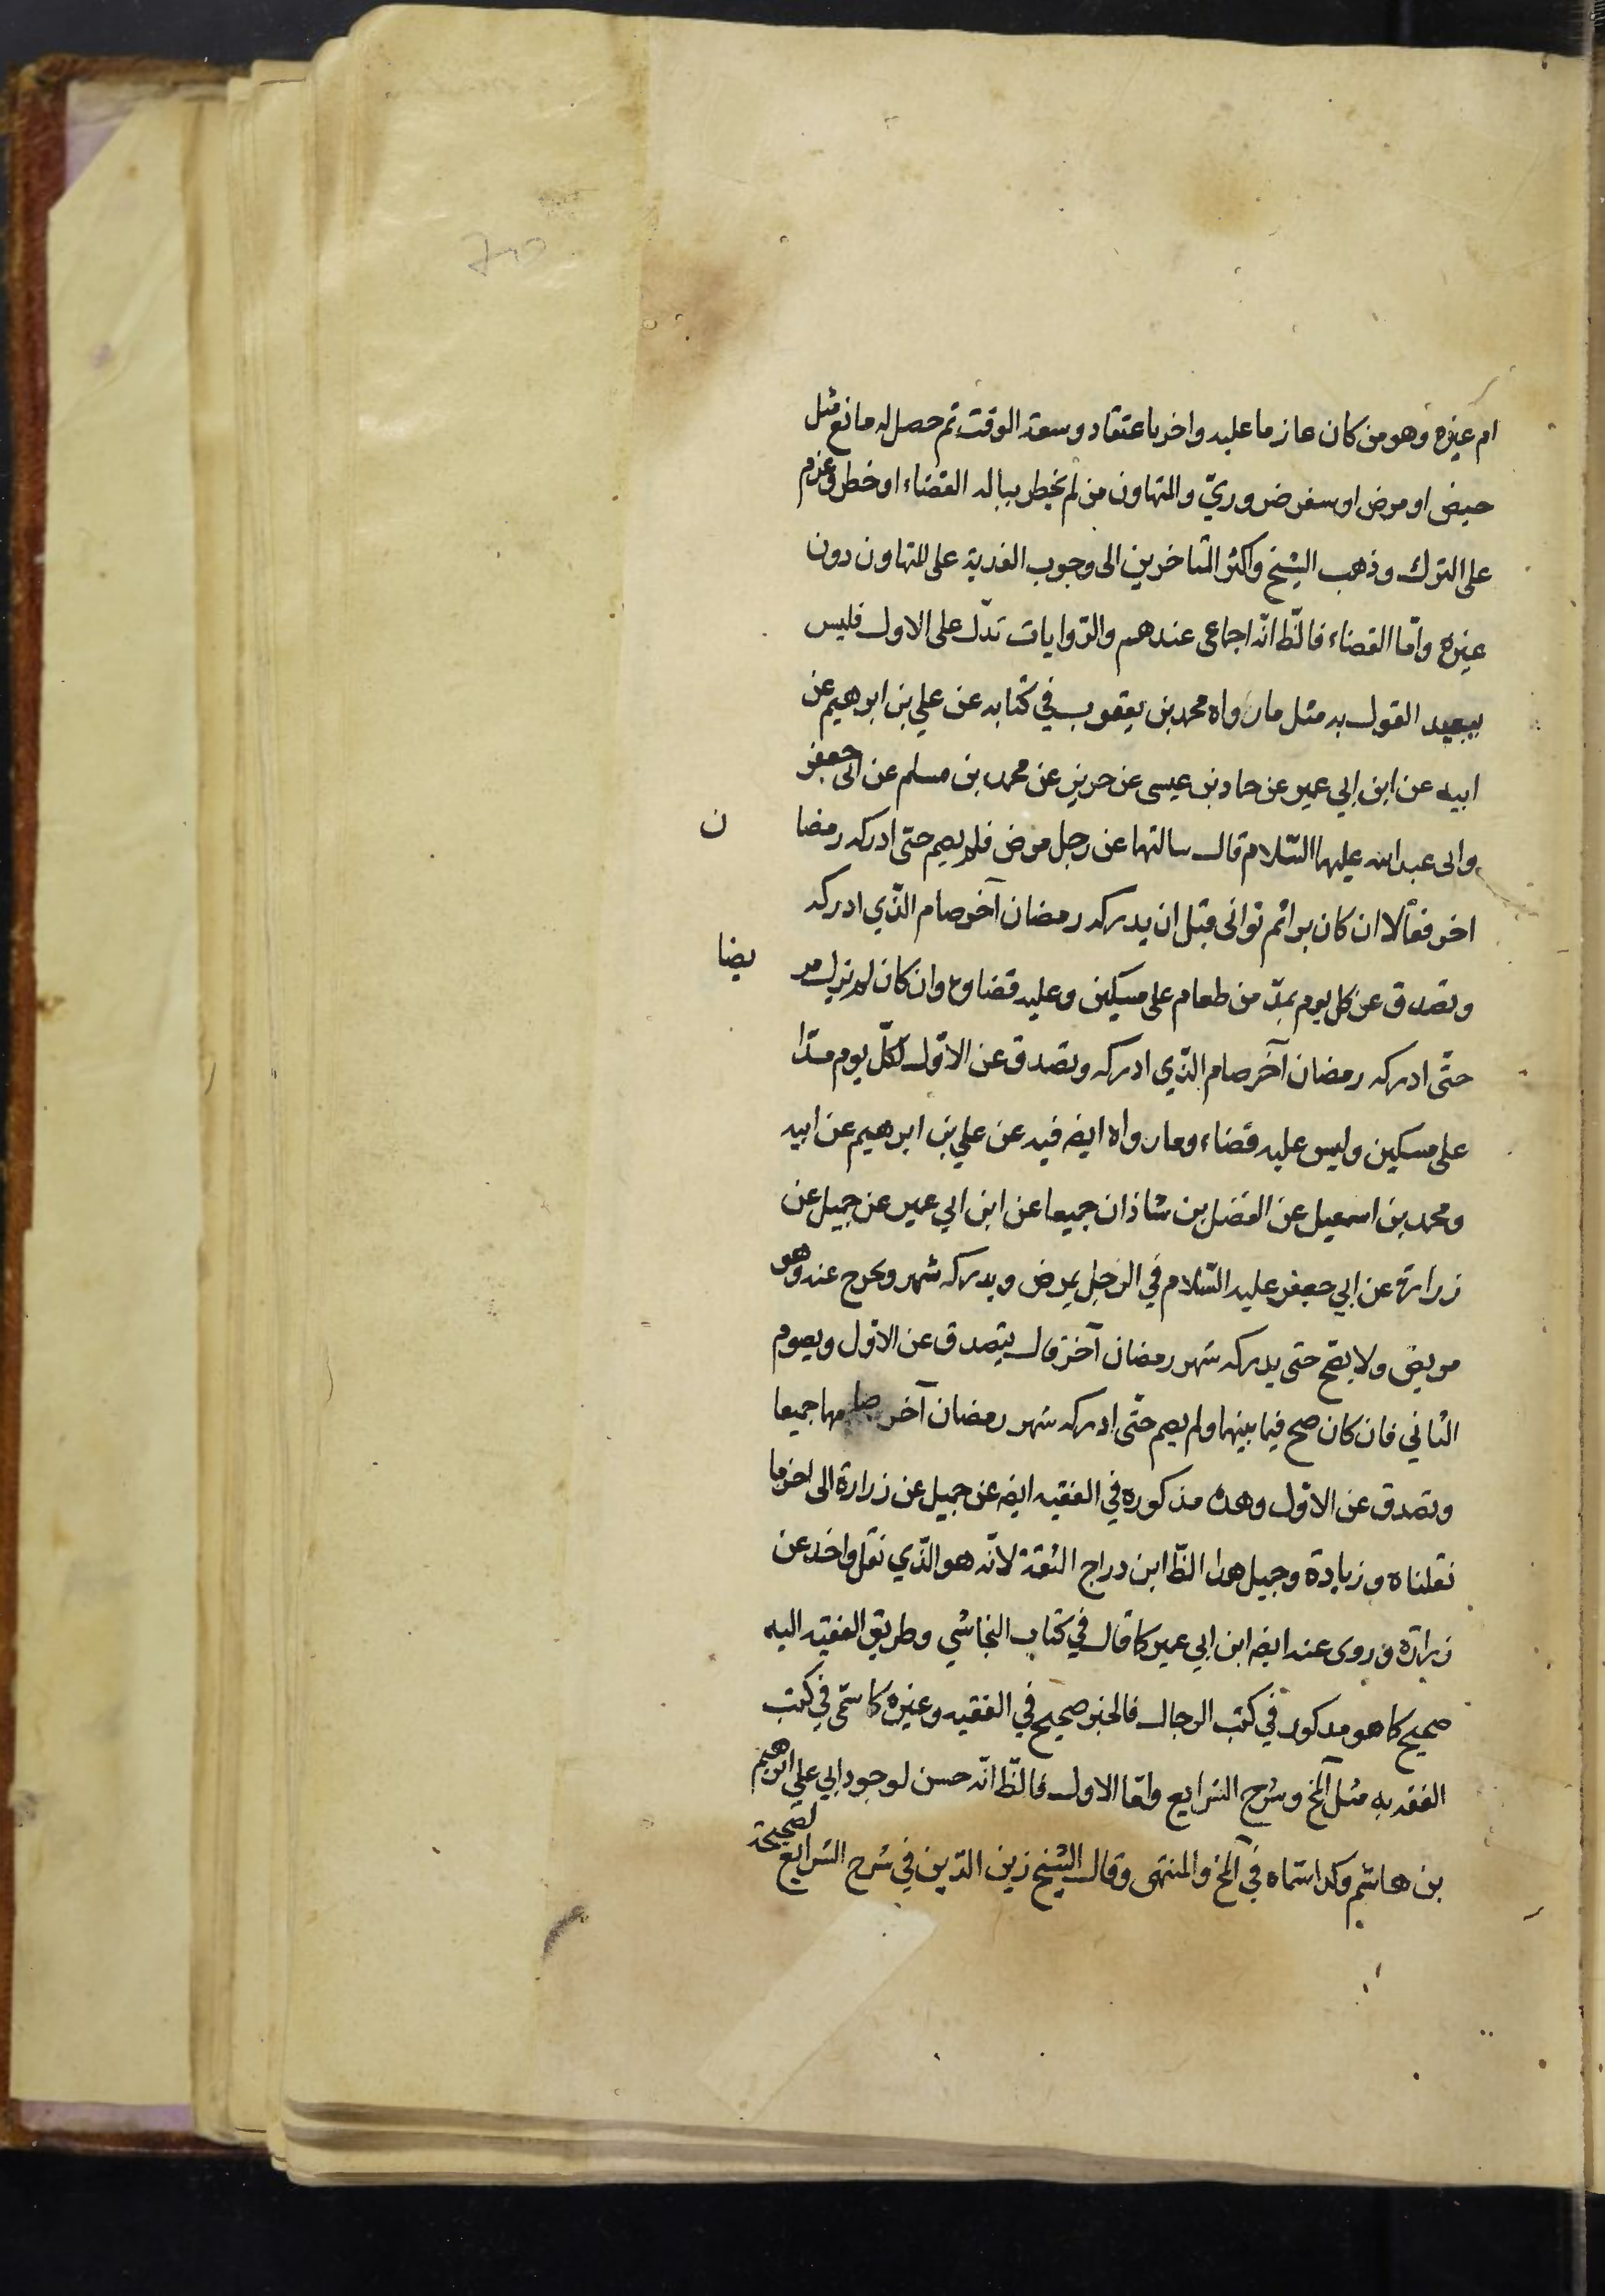 ام غيره وهو من كان عازما عليه واخر باعتقاد وسعة الوقت ثم حصل له مانع مثل
حيض او مرض او سفر ضروريّ والمتهاون من لم يخطر بباله القضاء او خطر وعزم
على الترك وذهب الشيخ واكثر المتاخرين الى وجوب الفدية على المتهاون دون
غيره وامّا القضاء فالظّ انّه اجماعى عندهم والرّوايات تدّل على الاول فليس
ببعيد القول به مثل ما رواه محمد بن يعقوب في كتابه عن علي بن ابرهيم عن
ابيه عن ابن ابي عمير عن حماد بن عيسى عن حريز عن محمد بن مسلم عن ابى جعفر
وابى عبد الله عليهما السّلام قال سالتهما عن رجل مرض فلم يصم حتى ادركه رمضا ن
اخر فقالا ان كان برا ثم توانى قبل ان يدركه رمضان آخر صام الذّي ادركه
وتصدق عن كل يوم بمدّ من طعام على مسكين وعليه قضاوه وان كان لم يزل مر يضا
حتّى ادركه رمضان آخر صام الذّي ادركه وتصدق عن الاوّل لكلّ يوم مدّا
على مسكين وليس عليه قضاء وما رواه ايضه فيه عن علي بن ابرهيم عن ابيه
ومحمد بن اسمعيل عن الفضل بن شاذان جميعا عن ابن ابي عمير عن جميل عن
زرارة عن ابي جعفر عليه السّلام في الرّجل يمرض ويدركه شهر ويخرج عنه وهو
مريض ولا يصّح حتى يدركه شهر رمضان آخر قال يتصدق عن الاوّل ويصوم
الثاني فان كان صح فيما بينهما ولم يصم حتّى ادركه شهر رمضان آخر صامهما جميعا
وتصدق عن الاوّل وهذه مذكوره في الفقيه ايضه عن جميل عن زرارة الى اخر ما
نقلناه وزيادة وجميل هذا الظّ ابن دراج الثقة لانّه هو الذّي نقل واخذ عن
زرارة وروى عنه ايضه ابن ابي عمير كما قال في كتاب النجاشي وطريق الفقيه اليه
صحيح كما هو مذكور في كتب الرجال فالخبر صحيح في الفقيه وغيره كما سمّى في كتب
الفقه به مثل آلمخ وشرح الشرايع وامّا الاول فالظّ انّه حسن لوجود ابي علي ابرهيم
بن هاشم وكذا سمّاه في آلمخ والمنتهى وقال الشيخ زين الدّين في شرح الشرايع لصحيحة